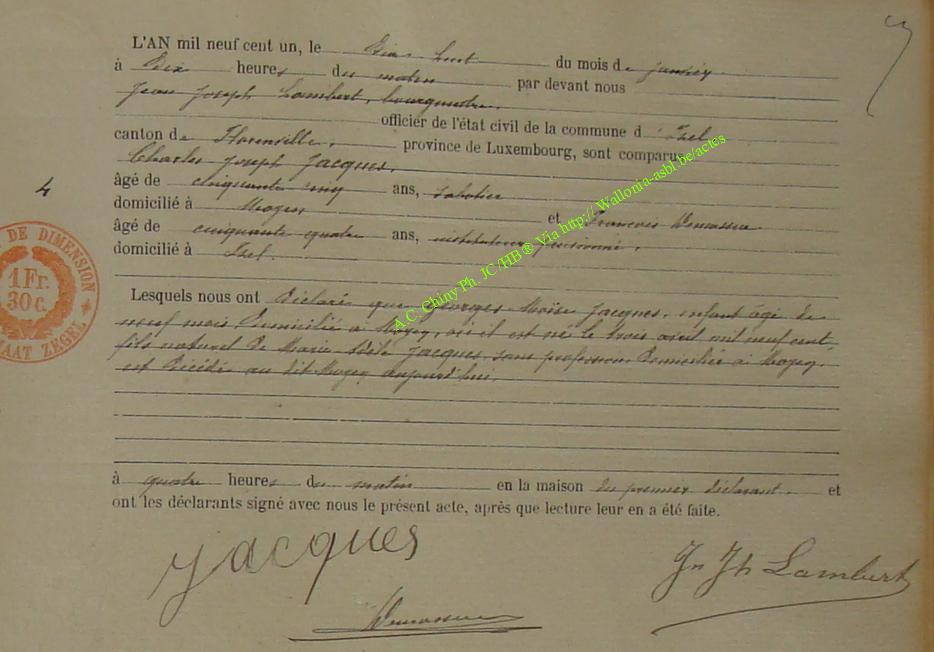 L'AN mil neuf cent un, le Dix huit du mois de janvier
à Dix heures du matin par devant nous
Jean Joseph Lambert, bourgmestre
officier de l'état civil de la commune d'Izel
canton de Florenville, province de Luxembourg, sont comparus
Charles Joseph Jacques,
âgé de cinquante cinq ans, sabotier
domicilié à Moyen et François
âgé de cinquante quatre ans, instituteur pensionné,
domicilié à Izel.
4
DE DIMENSION
1 Fr.
30 C.
MAAT ZEGEL
Lesquels nous ont Déclaré que Georges Moïse Jacques, enfant âgé de
neuf mois, Domicilié à Moyen, où il est né le trois avril mil neuf cent,
fils naturel De Marie Adèle Jacques, sans profession Domiciliée à Moyen,
est Décédé au dit Moyen aujourd'hui.
à quatre heures du matin en la maison du premier déclarant. et
ont les déclarants signé avec nous le présent acte, après que lecture leur en a été faite.
Jacques
Jn Jh Lambert
A.C. Chiny Ph. JC /HB ® Via http://Wallonia-asbl.be/actes